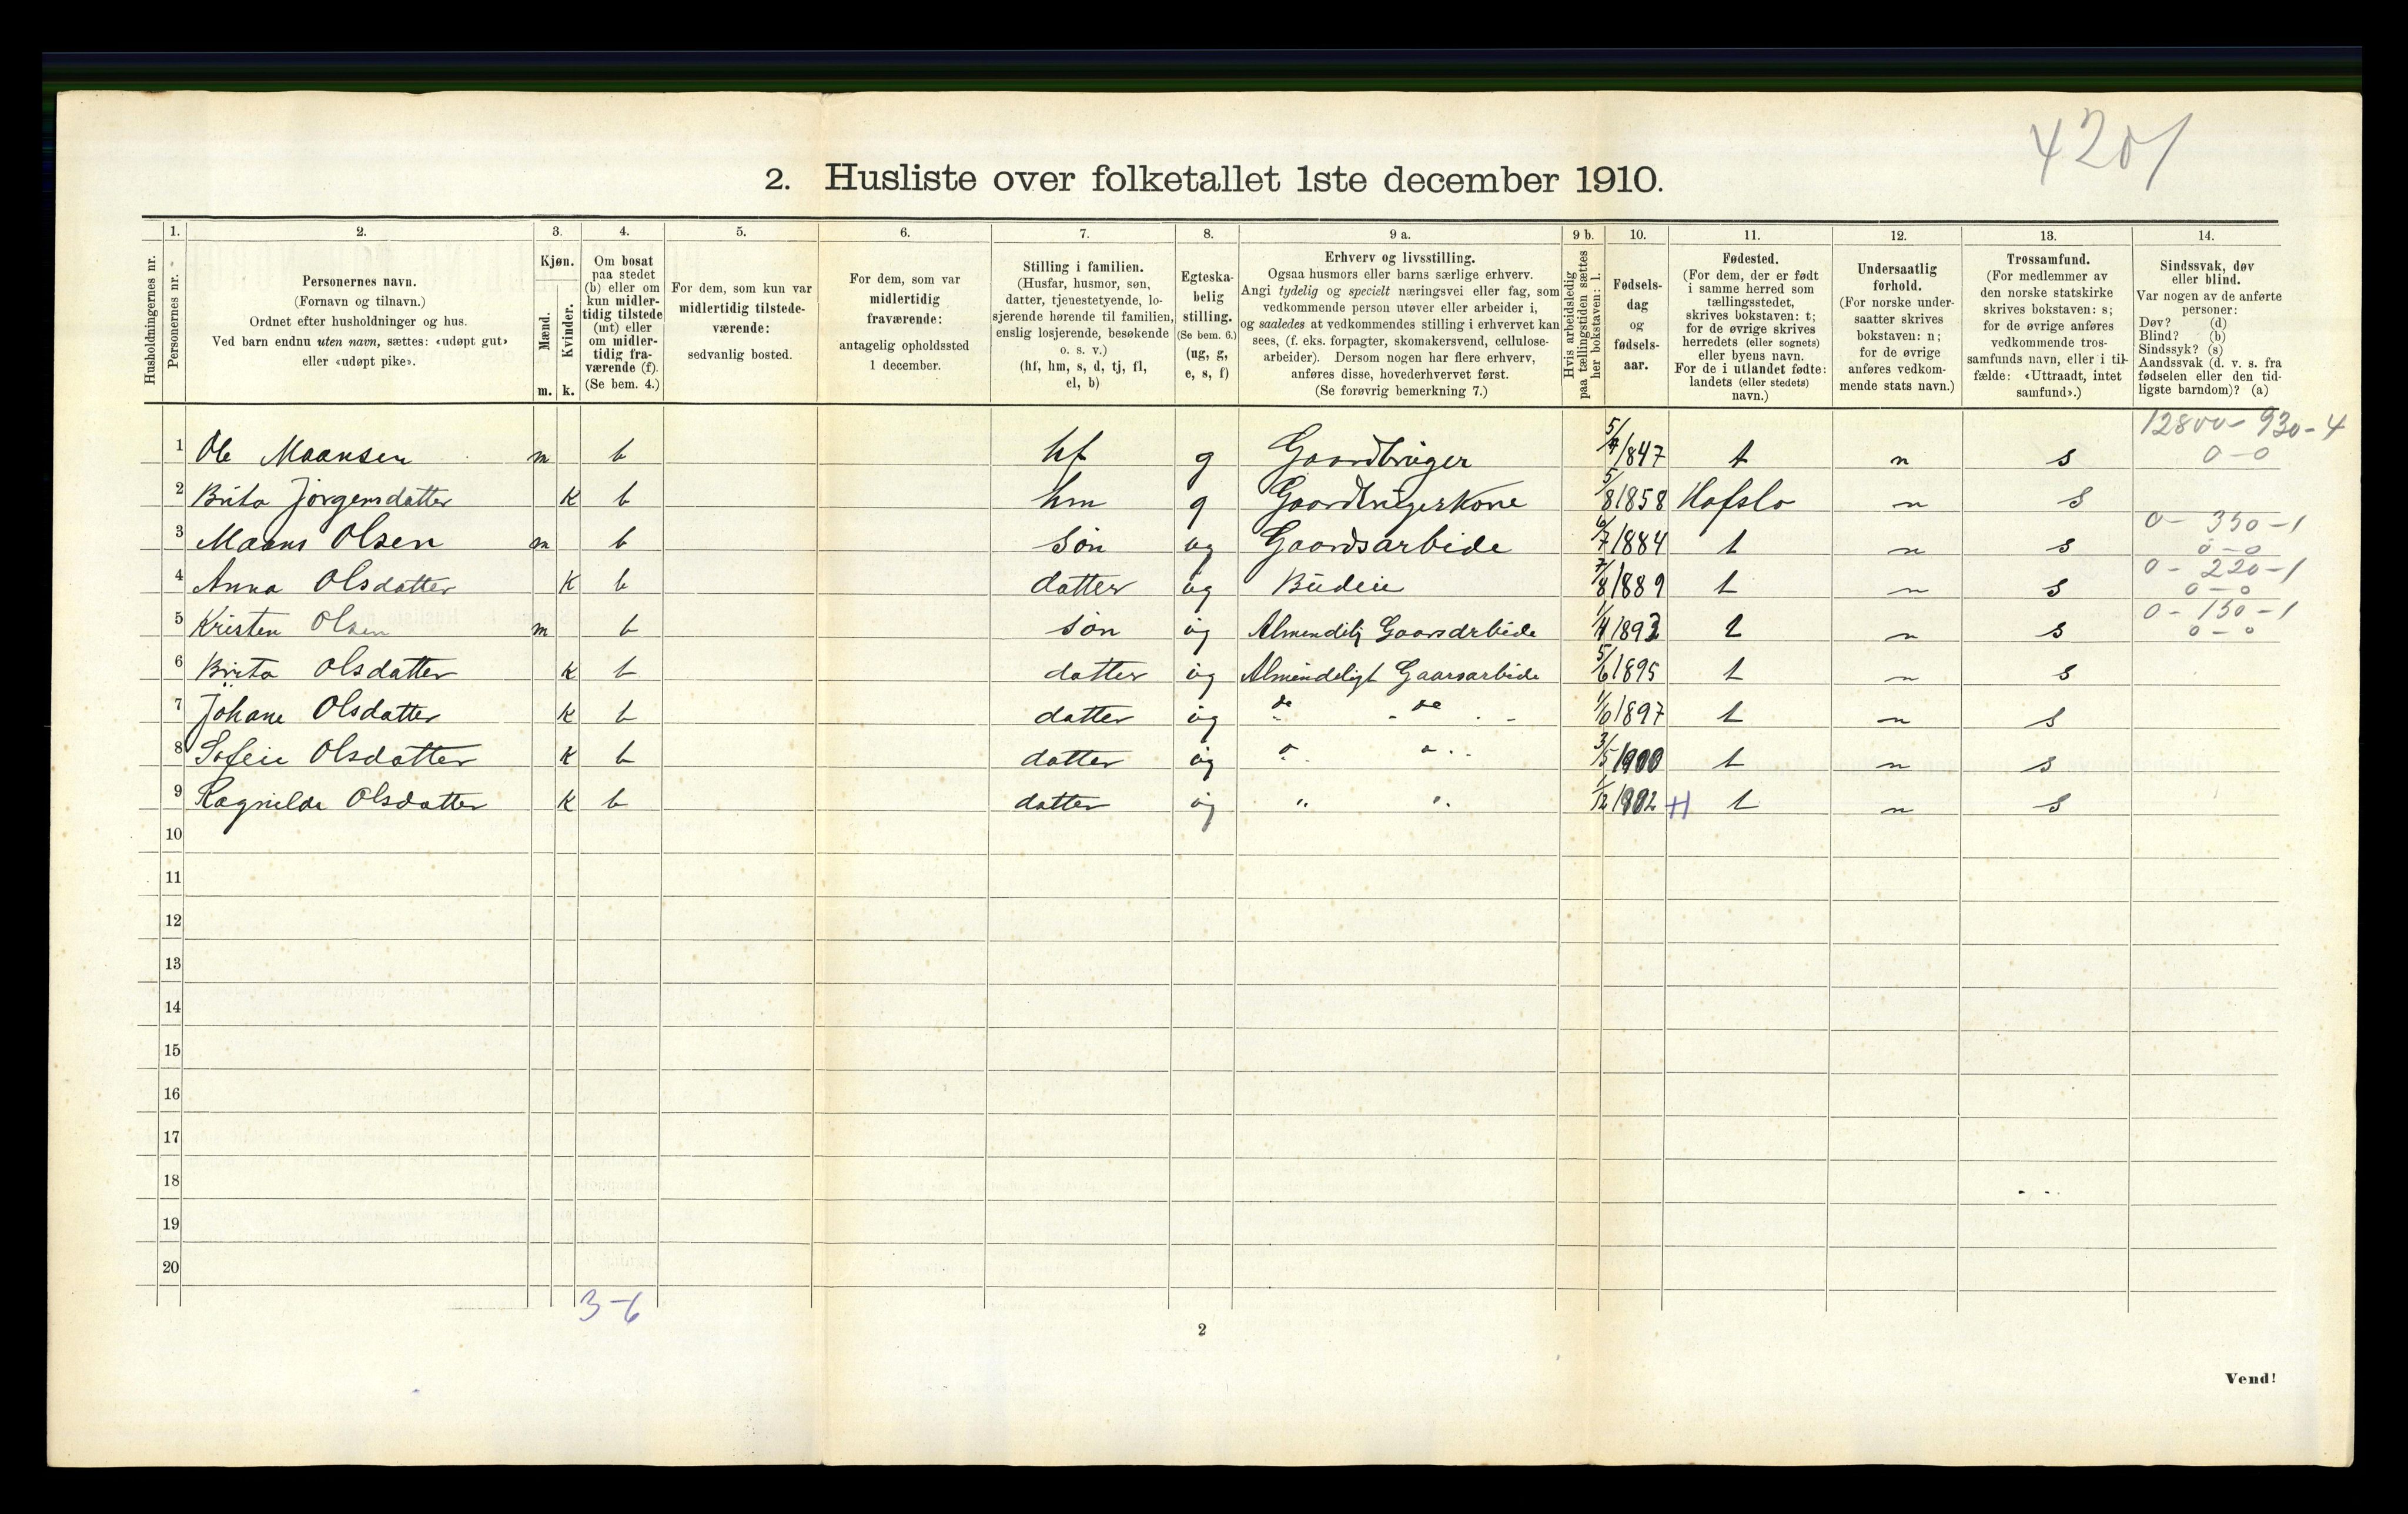 4201
2. Husliste over folketallet 1ste december 1910.
Husholdningernes nr.
1.
Personernes nr.
2.
Personernes navn.
(Fornavn og tilnavn.)
Ordnet efter husholdninger og hus.
Ved barn endnu uten navn, sættes: «udøpt gut»
eller «udøpt pike».
3.
Kjøn.
Mænd.
Kvinder.
m. k.
4.
Om bosat
paa stedet
(b) eller om
kun midler-
tidig tilstede
(mt) eller
om midler-
tidig fra-
værende (f).
(Se bem. 4.)
5.
For dem, som kun var
midlertidig tilstede-
værende:
sedvanlig bosted.
6.
For dem, som var
midlertidig
fraværende:
antagelig opholdssted
1 december.
7.
Stilling i familien.
(Husfar, husmor, søn,
datter, tjenestetyende, lo-
sjerende hørende til familien,
enslig losjerende, besøkende
o. s. v.)
(hf, hm, s, d, tj, fl,
el, b)
8.
Egteska-
belig
stilling.
(Se bem. 6.)
(ug, g,
e, s, f)
9 a.
Erhverv og livsstilling.
Ogsaa husmors eller barns særlige erhverv.
Angi tydelig og specielt næringsvei eller fag, som
vedkommende person utøver eller arbeider i,
og saaledes at vedkommendes stilling i erhvervet kan
sees, (f. eks. forpagter, skomakersvend, cellulose-
arbeider). Dersom nogen har flere erhverv,
anføres disse, hovederhvervet først.
(Se forøvrig bemerkning 7.)
9 b.
Hvis arbeidsledig
paa tællingstiden sættes
her bokstaven: l.
10.
Fødsels-
dag
og
fødsels-
aar.
11.
Fødested.
(For dem, der er født
i samme herred som
tællingsstedet,
skrives bokstaven: t;
for de øvrige skrives
herredets (eller sognets)
eller byens navn.
For de i utlandet fødte:
landets (eller stedets)
navn.)
12.
Undersaatlig
forhold.
(For norske under-
saatter skrives
bokstaven: n;
for de øvrige
anføres vedkom-
mende stats navn.)
13.
Trossamfund.
(For medlemmer av
den norske statskirke
skrives bokstaven: s;
for de øvrige anføres
vedkommende tros-
samfunds navn, eller i til-
fælde: «Uttraadt, intet
samfund».)
14.
Sindssvak, døv
eller blind.
Var nogen av de anførte
personer:
Døv? (d)
Blind? (b)
Sindssyk? (s)
Aandssvak (d. v. s. fra
fødselen eller den tid-
ligste barndom)? (a)
12800 - 930 - 4
1 Ole Maansen m b hf g Gaardbruger 1847 t n s 0 - 0
2 Brita Jørgensdatter k b hm g Gaardbrugerkone 5/8 1858 Hafslo n s
0 - 350 - 1
3 Maans Olsen m b søn ug Gaardsarbide 6/7 1884 t n s 0 - 0
0 - 220 - 1
4 Anna Olsdatter k b datter ug Budeie 7/8 1889 t n s 0 - 0
0 - 150 - 1
5 Kristen Olsen m b søn ug Almendelij Gaarsdrbide 1/4 1893 t n s 0 - 0
6 Brita Olsdatter k b datter ug Almindeligt Gaarsarbide 5/6 1895 t n s
7 Johane Olsdatter k b datter ug do do 1/6 1897 t n s
8 Sofeie Olsdatter k b datter ug " " 3/5 1900 t n s
9 Ragnilda Olsdatter k b datter ug " " 1/12 1902 H t n s
10
11
12
13
14
15
16
17
18
19
20
3-6
2
Vend!